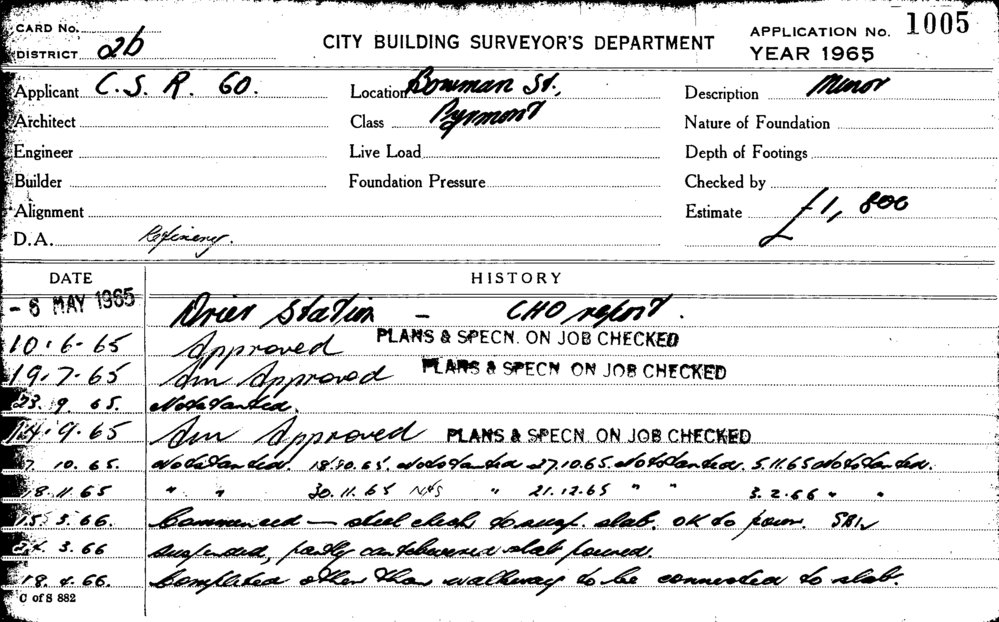 CARD No.
DISTRICT 2b
CITY BUILDING SURVEYOR'S DEPARTMENT
APPLICATION No. 1005
YEAR 1965
Applicant C. S. R. CO.
Location Bowman St.,
Description Minor
Architect
Class Pyrmont
Nature of Foundation
Engineer
Live Load
Depth of Footings
Builder
Foundation Pressure
Checked by
Alignment
Estimate £1,800
D.A. Refinery.
DATE HISTORY
- 6 MAY 1965 Drier Station - CHO report.
10.6.65 Approved PLANS & SPECN. ON JOB CHECKED
19.7.65 Am Approved PLANS & SPECN ON JOB CHECKED
23.9.65. Not started.
14.9.65 Am Approved PLANS & SPECN. ON JOB CHECKED
7.10.65. Not started. 18.10.65. Not started 27.10.65. Not started. 5.11.65 Not started.
18.11.65 " " 30.11.65 N/S " 21.12.65 " " 3.2.66 " "
15.3.66. Commenced - steel check to susp. slab. OK to pour.
24.3.66 Suspended, partly cantilevered slab poured.
18.4.66. Completed other than walkway to be connected to slab.
C of S 882